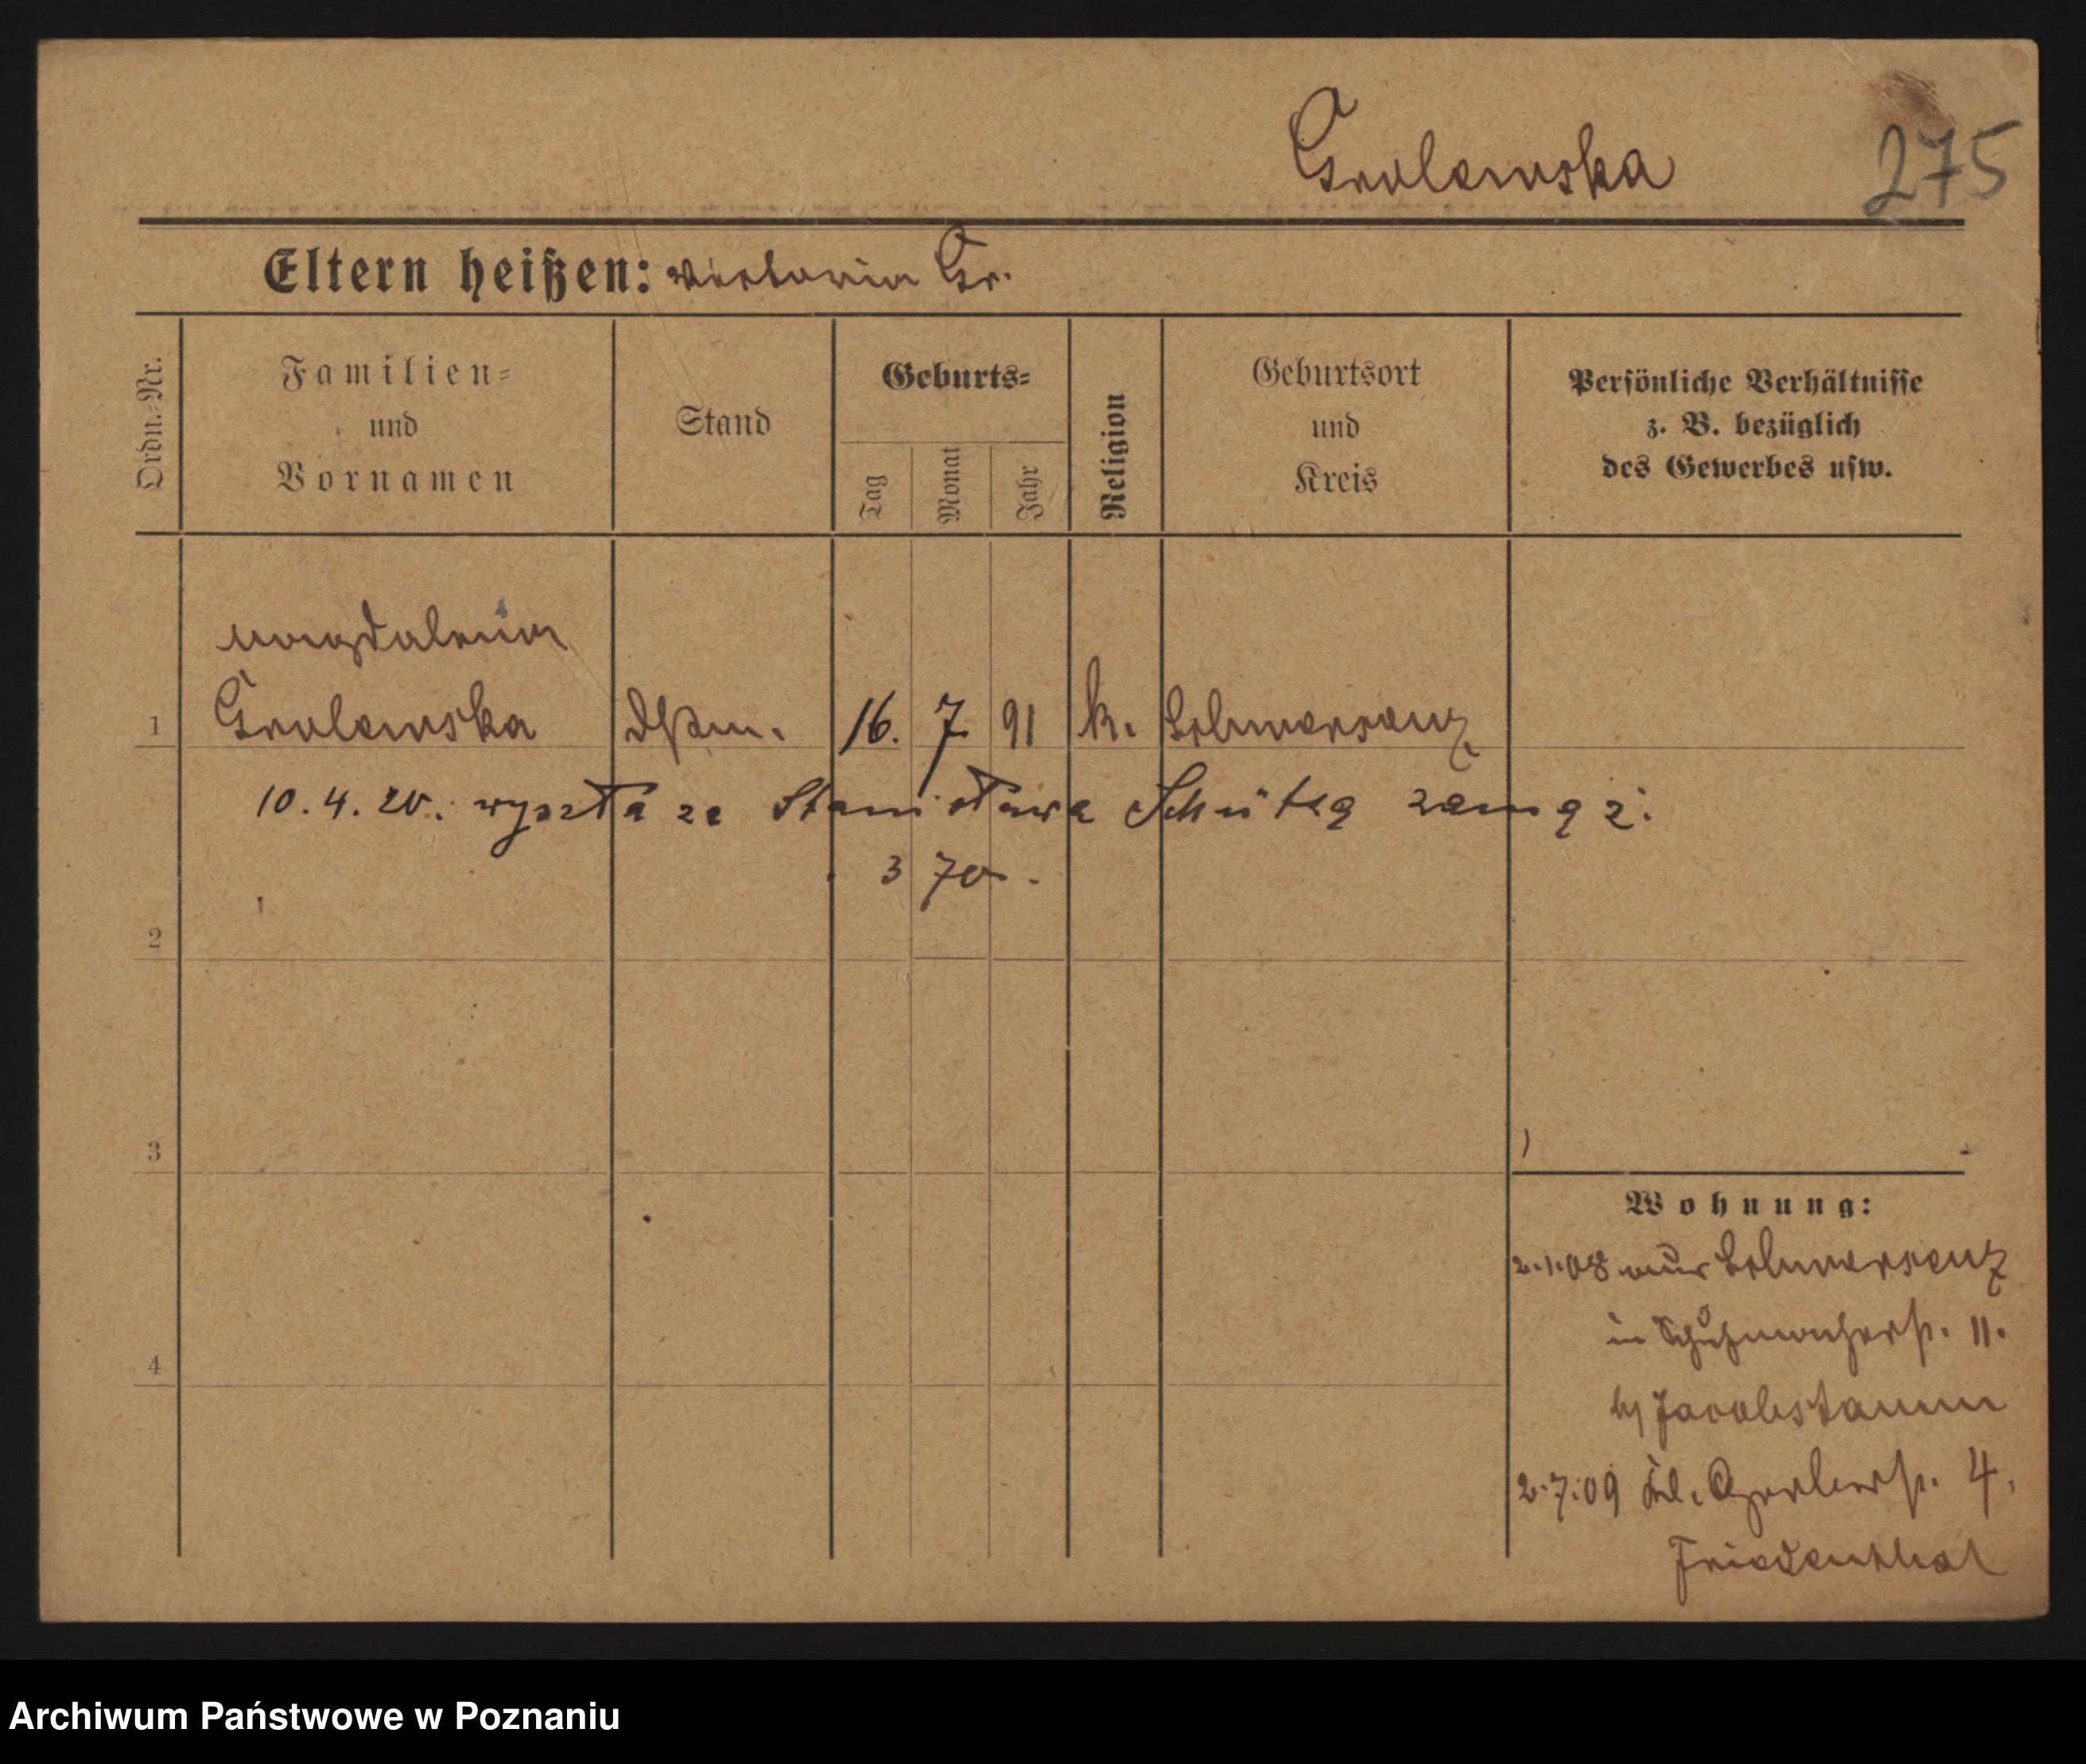 Grolewska
275
Eltern heißen: Viktoria Gr.
Ordn.-Nr.
Familien-
und
Vornamen
Stand
Geburts-
Tag
Monat
Jahr
Religion
Geburtsort
und
Kreis
Persönliche Verhältnisse
z. B. bezüglich
des Gewerbes usw.
Magdalena
1 Grolewska 16. 7. 91 k. Schwersenz
10.4.20. wyszła za Stanisława Schütza zamąż.
370.
2
3
4
Wohnung:
2.1.08 aus Schwersenz
in Schuhmacherst. 11.
b/
2.7.09 Kl. Gerberst. 4.
Friedenthal
Archiwum Państwowe w Poznaniu